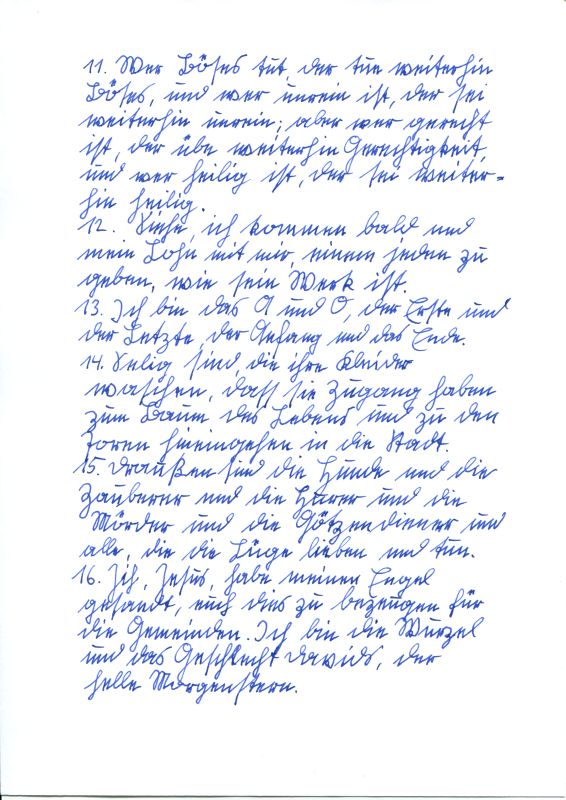 11. Wer Böses tut, der tue weiterhin
Böses, und wer unrein ist, der sei
weiterhin unrein; aber wer gerecht
ist, der übe weiterhin Gerechtigkeit,
und wer heilig ist, der sei weiter=
hin heilig.
12. Siehe, ich kommen bald und
mein Lohn mit mir, einem jeden zu
geben, wie sein Werk ist.
13. Ich bin das A und O, der Erste und
der Letzte, der Anfang und das Ende.
14. Selig sind, die ihre Kleider
waschen, dass sie Zugang haben
zum Baum des Lebens und zu den
Toren hineingehen in die Stadt.
15. Draußen sind die Hunde und die
Zauberer und die Hurer und die
Mörder und die Götzendiener und
alle, die die Lüge lieben und tun.
16. Ich, Jesus, habe meinen Engel
gesandt, euch dies zu bezeugen für
die Gemeinden. Ich bin die Wurzel
und das Geschlecht Davids, der
helle Morgenstern.